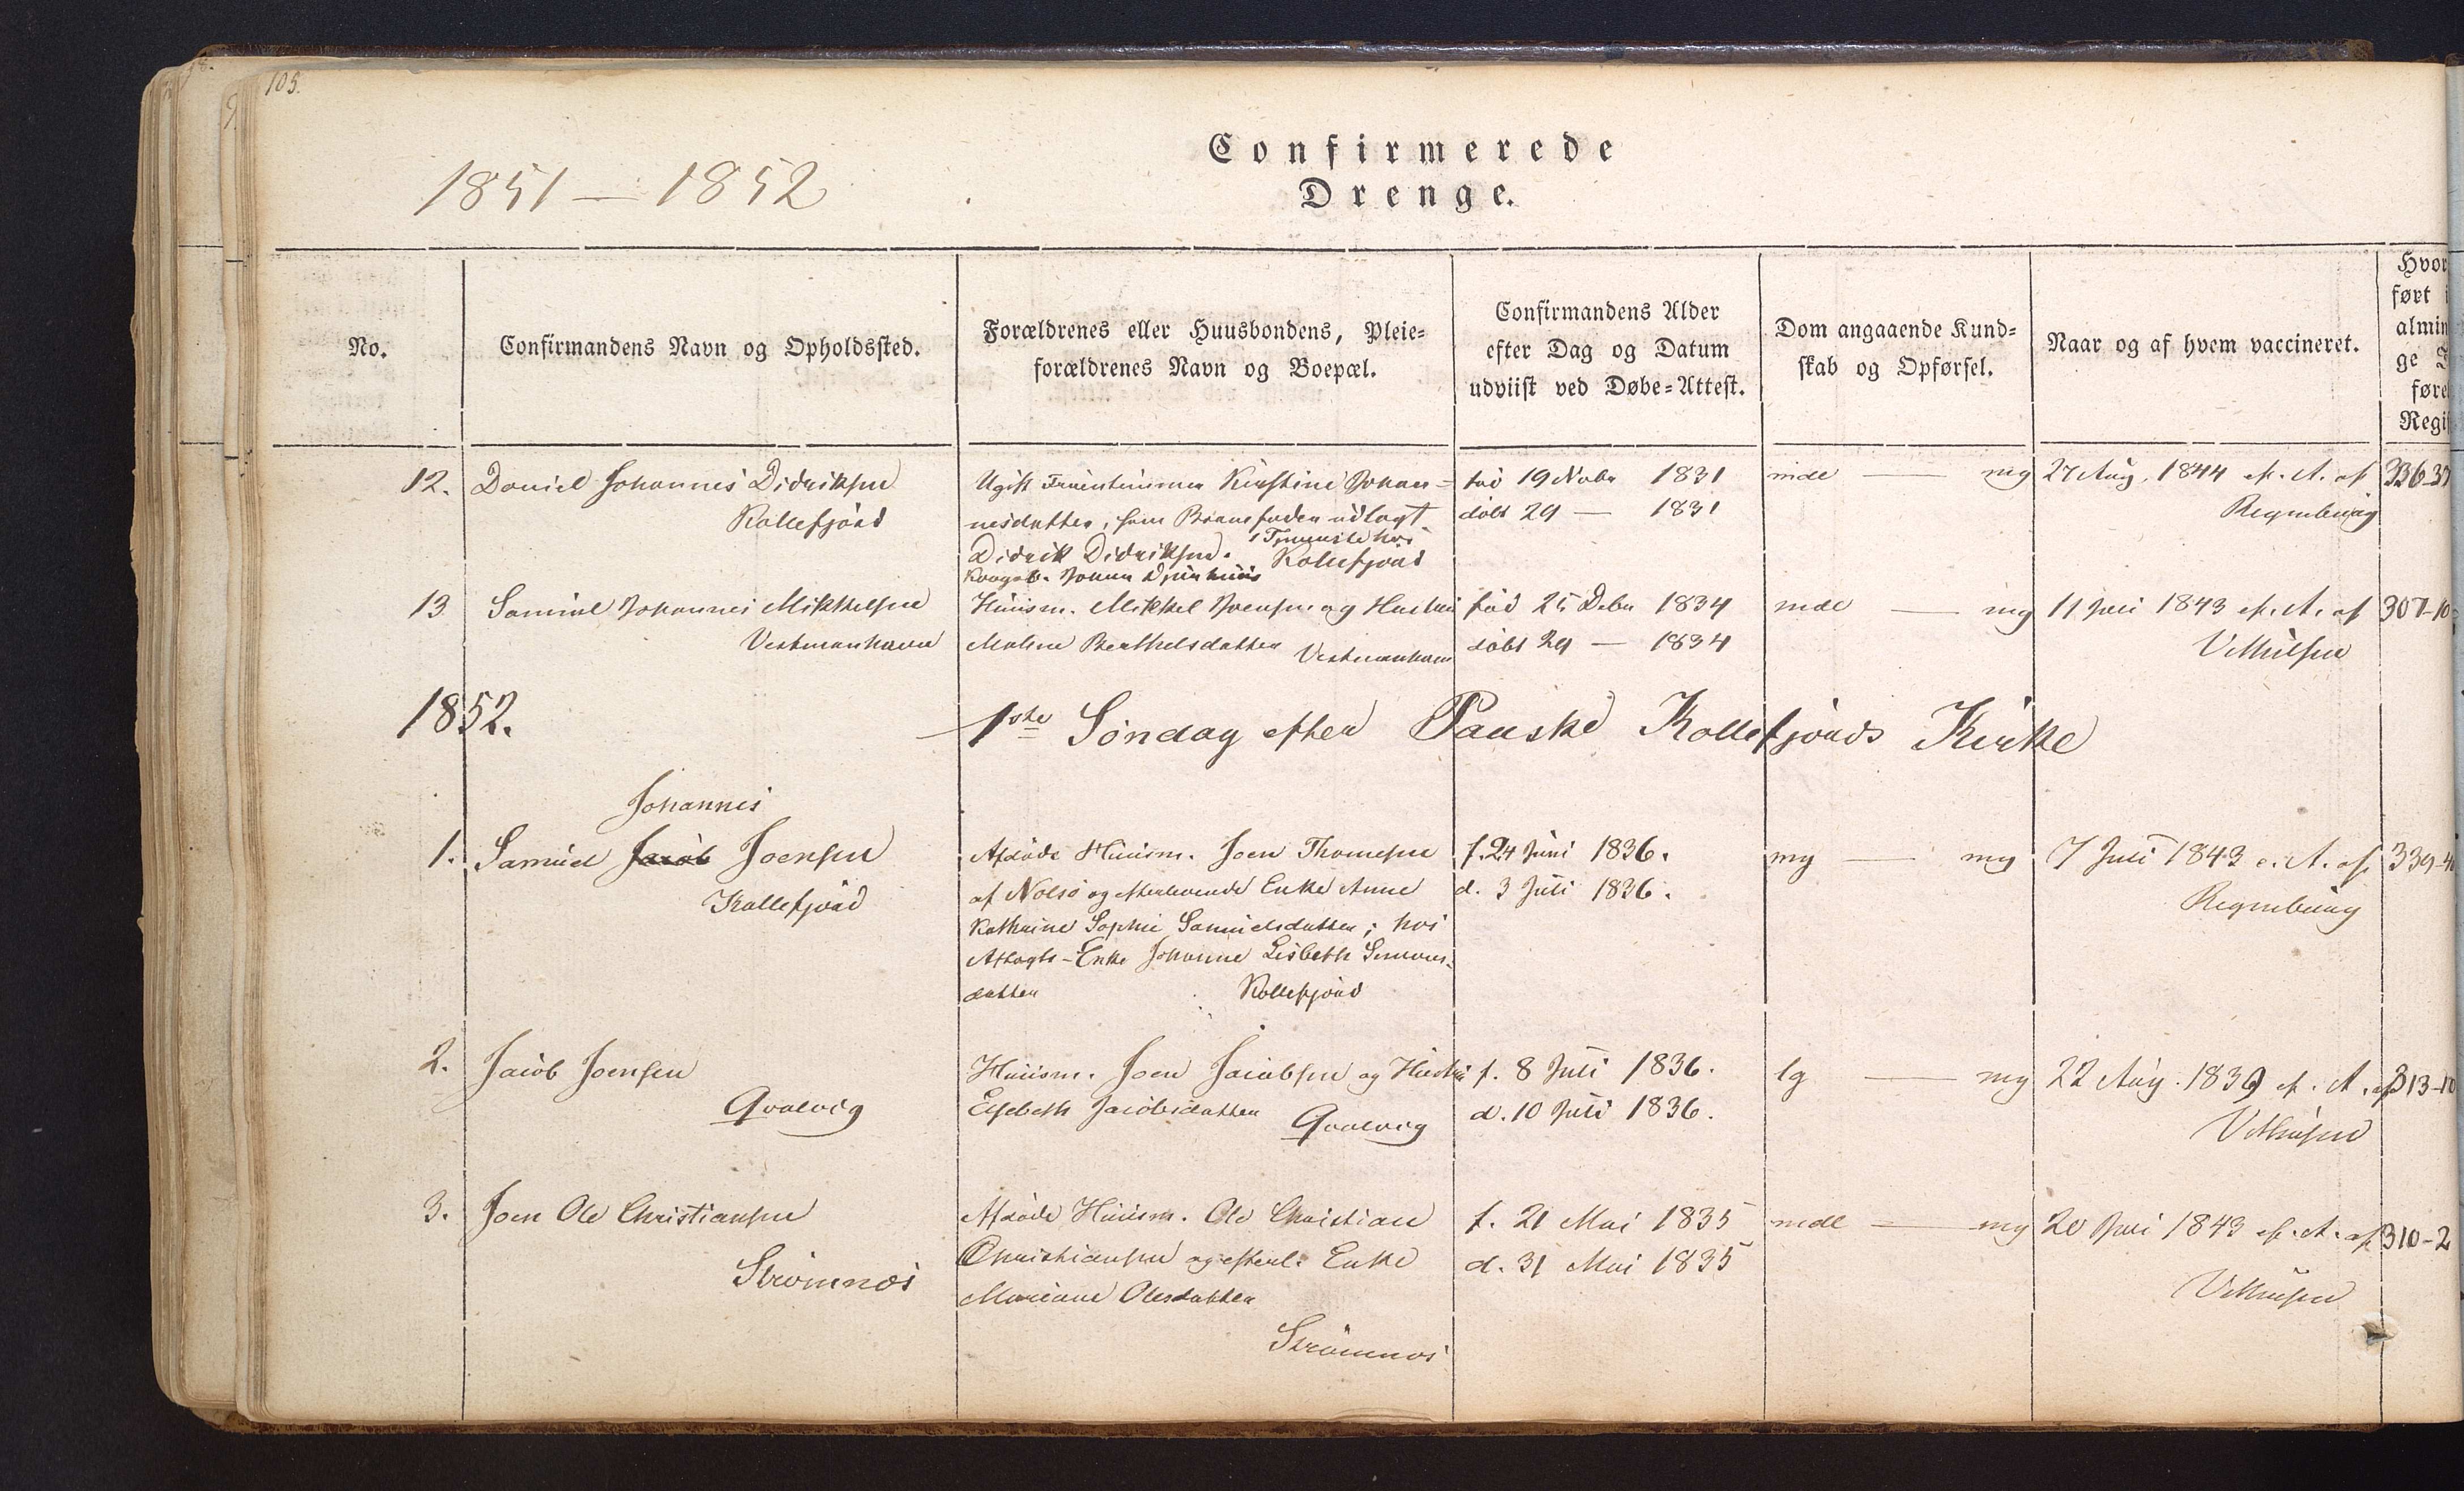 105.
1851 — 1852
Confirmerede
Drenge.
No.
Confirmandens Navn og Opholdssted.
Forældrenes eller Huusbondens, Pleie=
forældrenes Navn og Boepæl.
Confirmandens Alder
efter Dag og Datum
udviist ved Døbe=Attest.
Dom angaaende Kund=
skab og Opførsel.
Naar og af hvem vaccineret.
Hvor
ført i
almin
ge
føre
Regi
12. Daniel Johannes Didriksen
Kollefjord
Ugift Fruentimmer Kirstine Johan=
nesdatter, som Barnefader udlagt
Didrik Didriksen. Tjeneste hos
Kollefjord
Kongsb. Johan
fød 19 Novbr 1831
døbt 29 — 1831
mdl — mg
27 Aug. 1844 ef. A. af
Regenburg
336-37
13 Samuel Johannes Mikkelsen
Vestmanhavn
Huusm. Mikkel Joensen og Hustru
Malene Berthelsdatter Vestmanhavn
fød 25 Debr 1834
døbt 29 — 1834
mdl — mg
11 Juli 1843 ef. A. af
307-10
1852.
1ste Søndag efter Paaske Kollefjords Kirke
Johannes
1. Samuel Jacob Joensen
Kollefjord
Afdøde Huusm. Joen Thomesen
af Nolsø og efterlevende Enke Anne
Kathrine Sophie Samuelsdatter; hos
Aftagts-Enke Johanne Lisbeth Simons-
datter Kollefjord
f. 24 Juni 1836.
d. 3 Juli 1836.
mg — mg
7 Juli 1843 e. A. af
Regenburg
339-4
2. Jacob Joensen
Qvalvig
Huusm. Joen Jacobsen og Hustru
Elsebeth Jacobsdatter Qvalvig
f. 8 Juli 1836.
d. 10 Juli 1836.
lg — mg
22 Aug. 1839 ef. A. af
313-10
3. Joen Ole Christiansen
Strømnæs
Afdøde Huusm. Ole Christian
Christiansen og efterl. Enke
Mariane Olesdatter
Strømnæs
f. 21 Mai 1835
d. 31 Mai 1835
mdl — mg
20 Juli 1843 ef. A. af
310-2